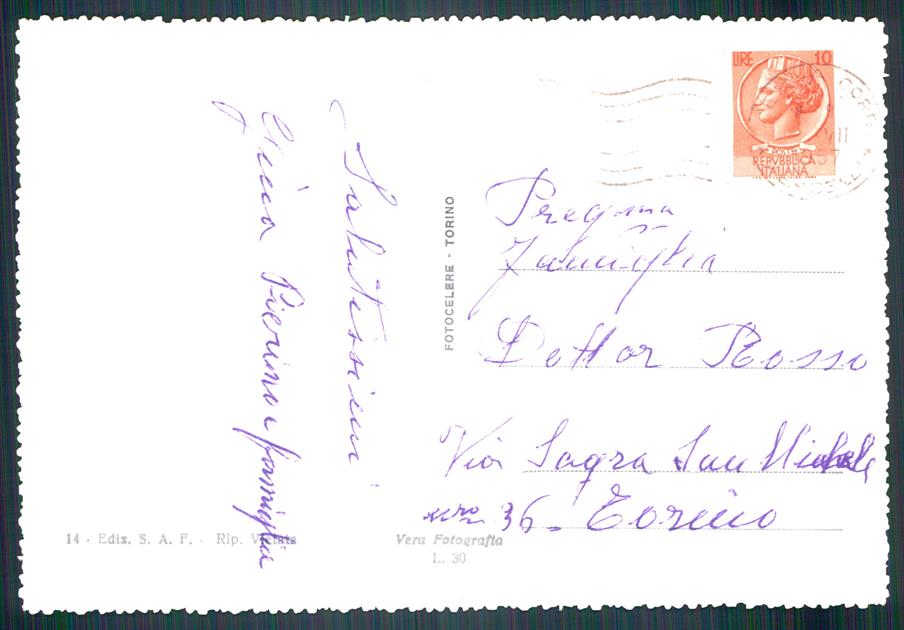 Salutissimi
Gina Pierino e famiglia
FOTOCELERE - TORINO
LIRE 10
POSTE
REPVBBLICA
ITALIANA
VII
957
Preg.ma
Famiglia
Dottor Rosso
Via Sagra San Michele
nro 36 - Torino
14 - Ediz. S. A. F. - Rip. Vietata
Vera Fotografia
L. 30